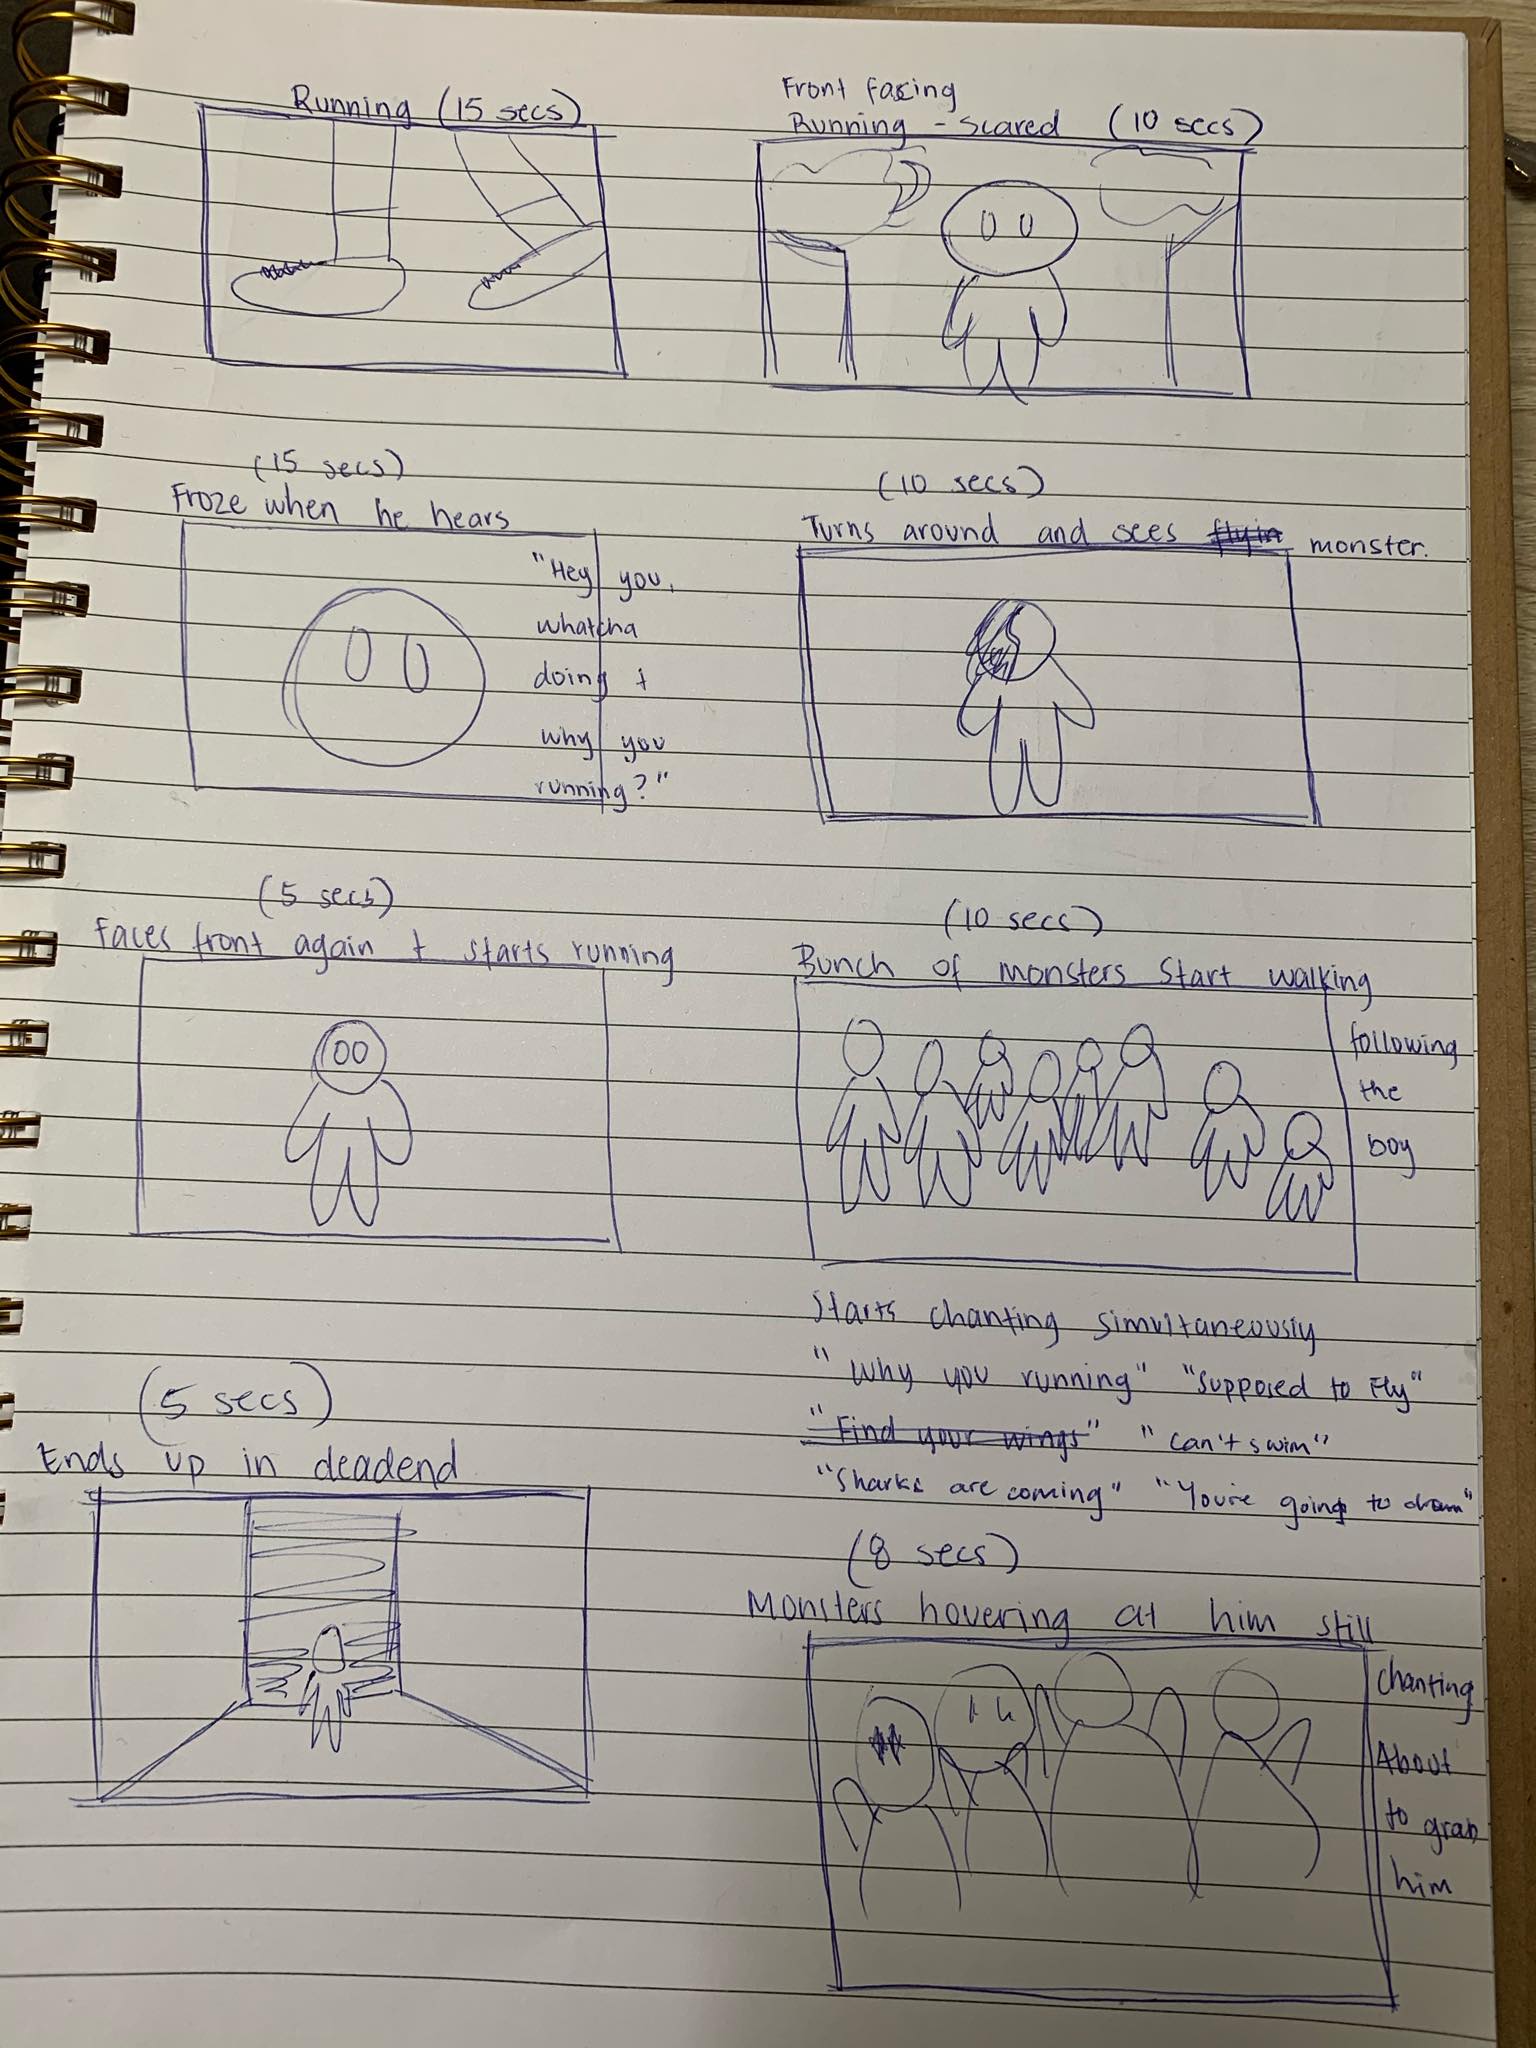 Running (15 secs)
Front facing
Running - scared (10 secs)
(15 secs)
Froze when he hears
"Hey you,
whatcha
doing +
why you
running?"
(10 secs)
Turns around and sees flyin monster.
(5 secs)
Faces front again + starts running
(10 secs)
Bunch of monsters start walking
following
the
boy
Starts chanting simultaneously
"Why you running" "Supposed to Fly"
"Find your wings" "can't swim"
"Sharks are coming" "You're going to drown"
(5 secs)
Ends up in deadend
(8 secs)
Monsters hovering at him still
chanting
About
to grab
him